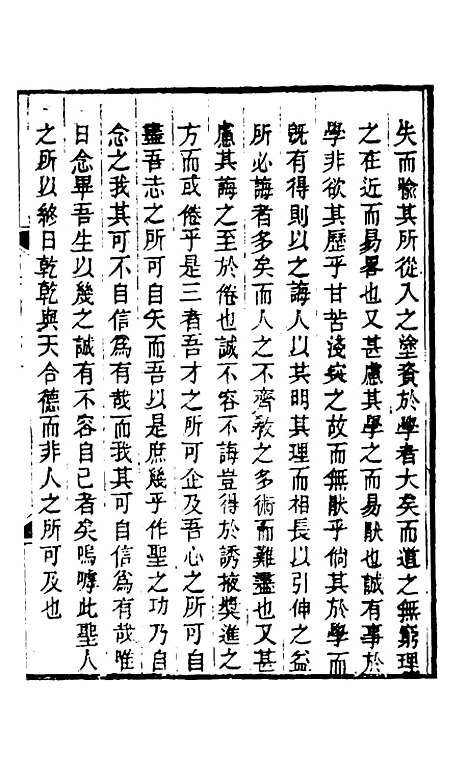 失而喻其所從入之塗資於學者大矣而道之無窮理
之在近而易畧也又甚慮其學之而易猒也誠有事於
學非欲其歷乎甘苦淺深之故而無猒乎倘其於學而
旣有得則以之誨人以其明其理而相長以引伸之益
所必誨者多矣而人之不齊敎之多術而難盡也又甚
慮其誨之至於倦也誠不容不誨豈得於誘掖奬進之
方而或倦乎是三者吾才之所可企及吾心之所可自
盡吾志之所可自矢而吾以是庶幾乎作聖之功乃自
念之我其可不自信爲有哉而我其可自信爲有哉惟
日念畢吾生以幾之誠有不容自己者矣嗚嘑此聖人
之所以終日乾乾與天合德而非人之所可及也